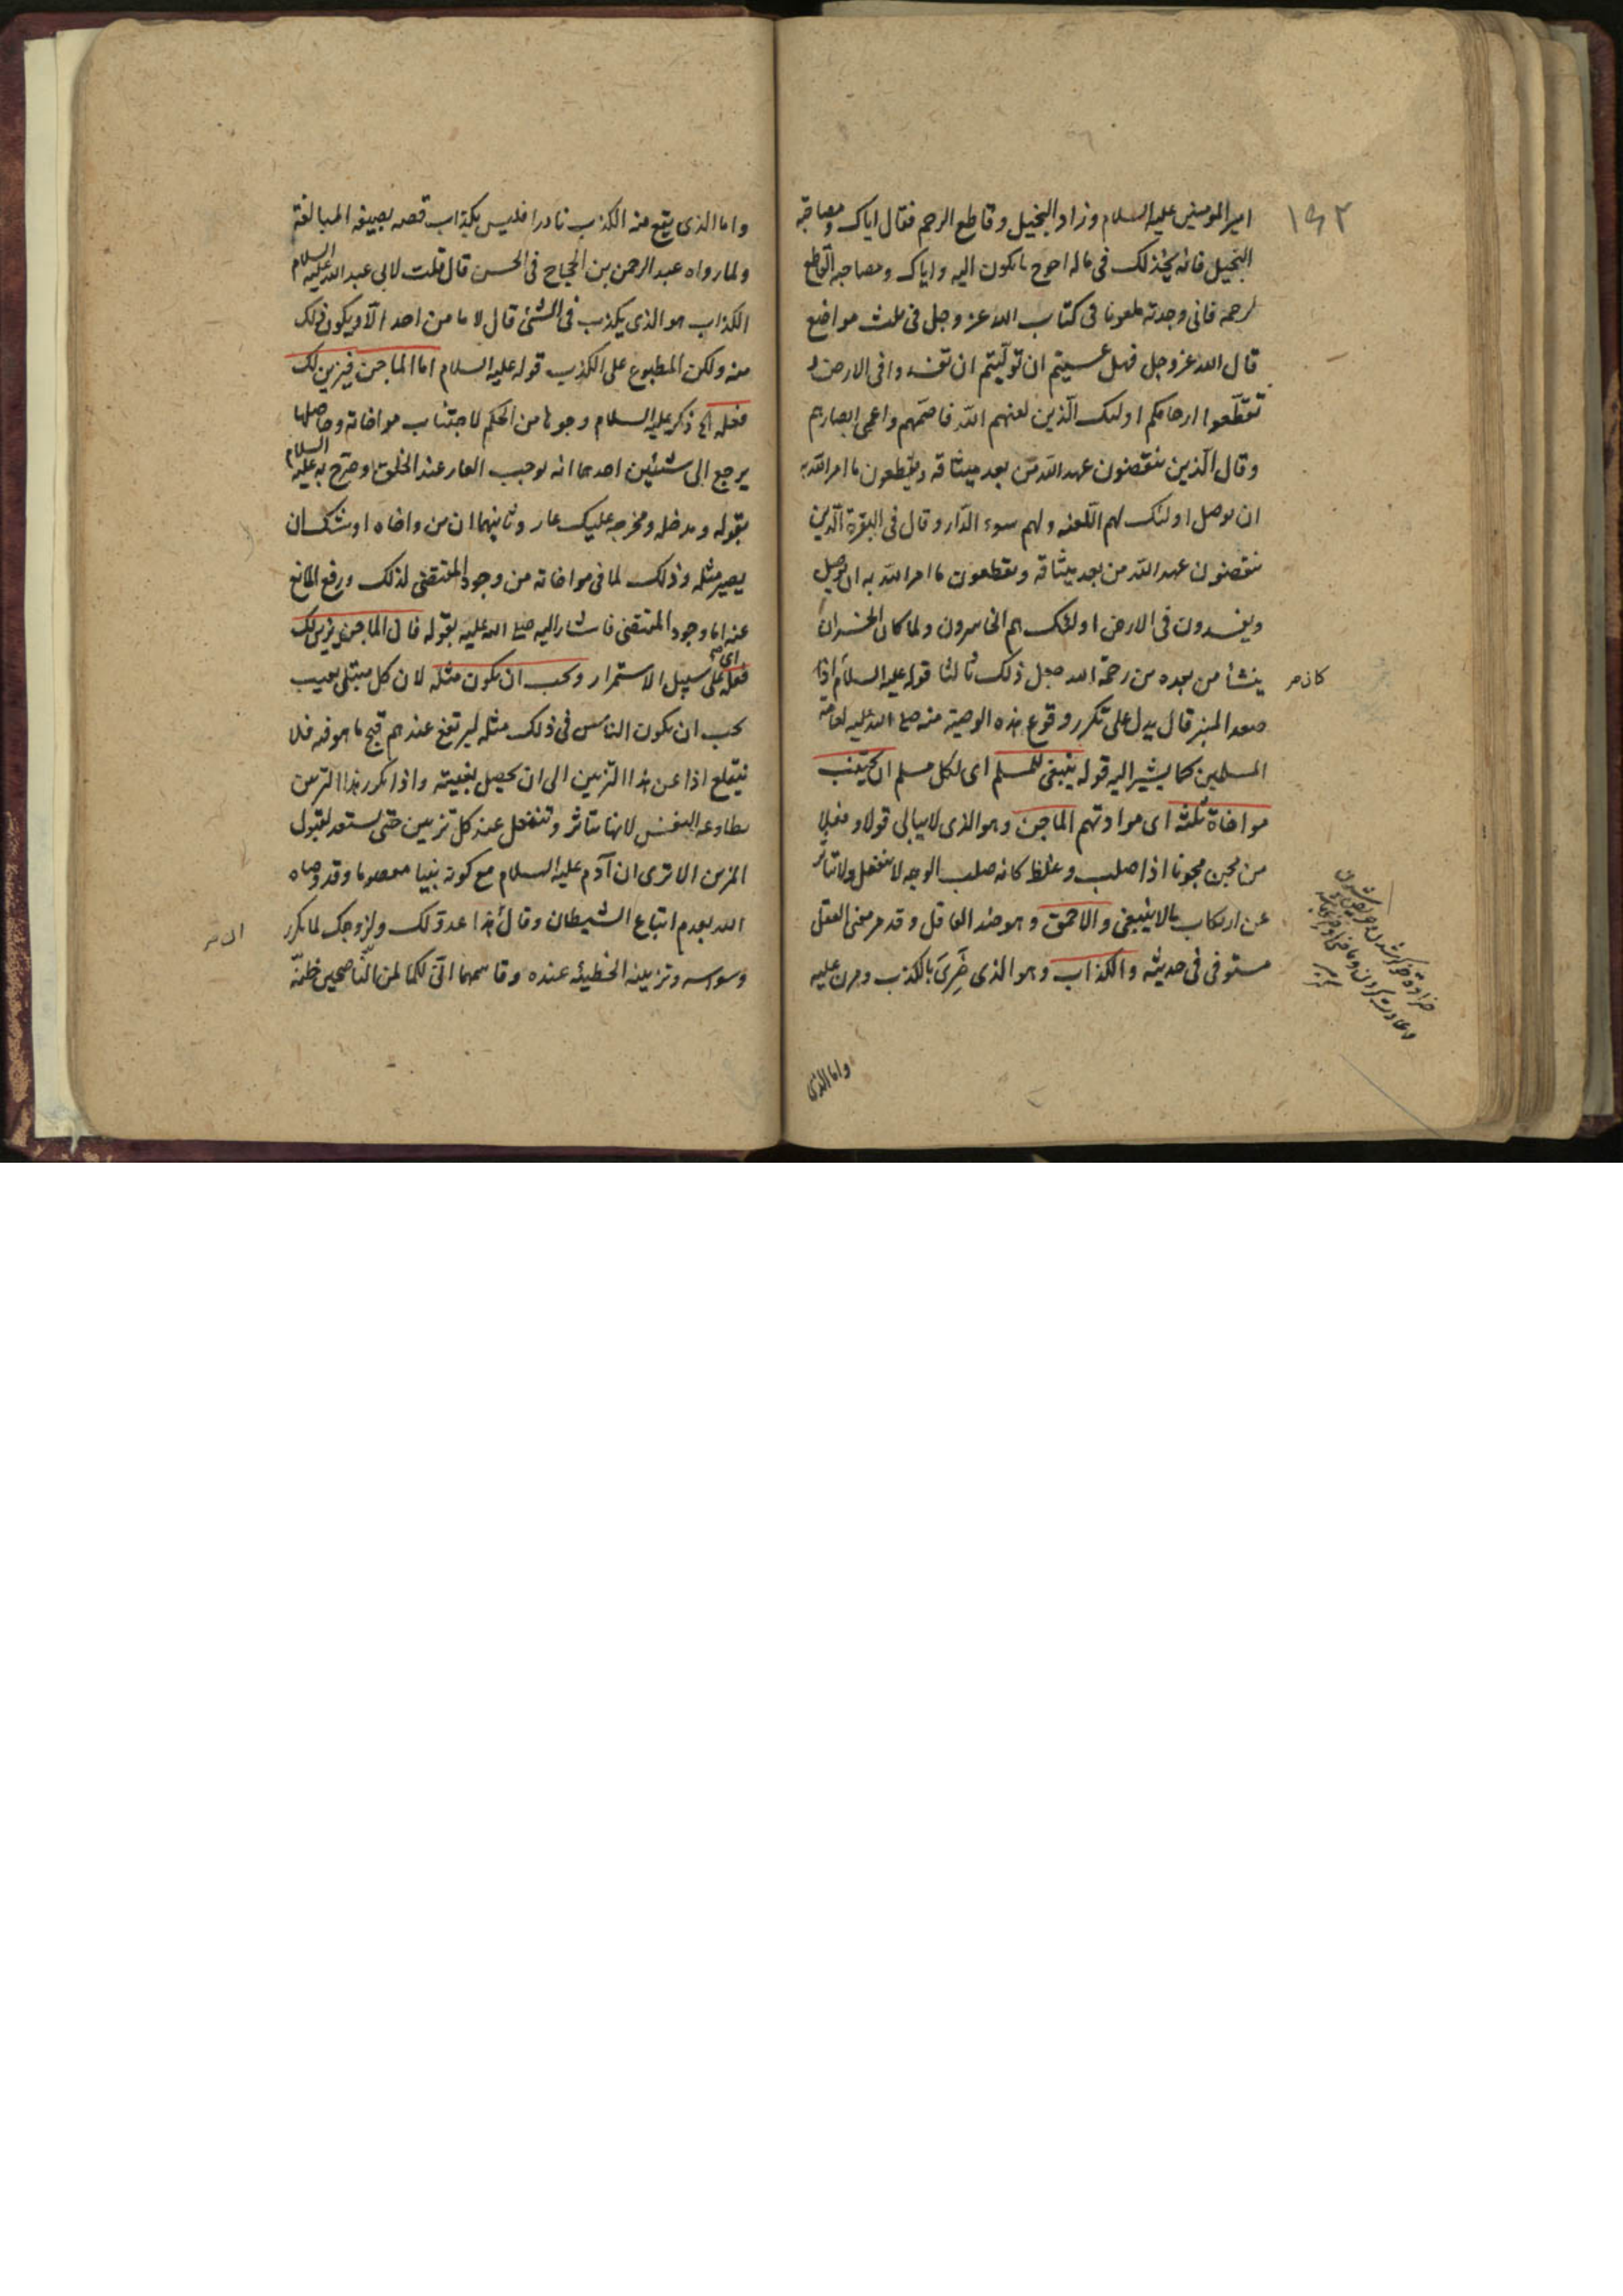 ١٩٢
امير المومنين عليه السلام وزاد البخيل وقاطع الرحم فقال اياك ومصاحبة
البخيل فانه يخذلك فى ماله احوج ما تكون اليه واياك ومصاحبة القاطع
لرحمه فانى وجدته ملعونا فى كتاب الله عز وجل فى ثلث مواضع
قال الله عز وجل فهل عسيتم ان تولّيتم ان تفسدوا فى الارض و
تقطّعوا ارحامكم اولئك الّذين لعنهم اللّه فاصمّهم واعمى ابصارهم
وقال الّذين ينقضون عهد اللّه من بعد ميثاقه ويقطعون ما امر اللّه به
ان يوصل اولئك لهم اللّعنه ولهم سوء الدّار وقال فى البقرة الّذين
ينقضون عهد اللّه من بعد ميثاقه ويقطعون ما امر اللّه به ان يوصل
ويفسدون فى الارض اولئك هم الخاسرون ولما كان الخسران
ينشأ من بعده من رحمة الله جعل ذلك ثالثا قوله عليه السلام اذا
كان
صعد المنبر قال يدل على تكرر وقوع هذه الوصية منه صلى الله عليه لعامة
المسلمين كما يشير اليه قوله ينبغى للمسلم اى لكل مسلم ان يجتنب
مواخاة ثلثه اى موادتهم الماجن وهو الذى لا يبالى قولا و فعلا
من مجن مجونا اذا صلب وغلظ كانه صلب الوجه لا ينفعل ولا يتاثر
عن ارتكاب ما لا ينبغى والاحمق وهو ضد العاقل وقد مر معنى العقل
مستوفى فى حديثه والكذاب وهو الذى ضَرِىَ بالكذب ومرن عليه
واما الذى
واما الذى يقع منه الكذب نادرا فليس بكذاب قصد بصيغه المبالغة
ولما رواه عبد الرحمن بن الحجاج فى الحسن قال قلت لابى عبد الله عليه السلام
الكذاب هو الذى يكذب فى الشئ قال لا ما من احد الّا ويكون ذلك
منه ولكن المطبوع على الكذب قوله عليه السلام اما الماجن فيزين لك
فعله الخ ذكر عليه السلام وجوها من الحكم لاجتناب مواخاته وحاصلها
يرجع الى شيئين احدهما انه يوجب العار عند الخلق وصرّح به عليه السلام
بقوله ومدخله ومخرجه عليك عار وثانيهما ان من واخاه اوشك ان
يصير مثله وذلك لما فى مواخاته من وجود المقتضى لذلك ورفع المانع
عنه اما وجود المقتضى فاشار اليه صلى الله عليه بقوله فان الماجن يزين لك
فعله اى على سبيل الاستمرار ويحب ان تكون مثله لان كل مبتلى بعيب
يحب ان يكون الناس فى ذلك مثله ليرتفع عندهم قبح ما هو فيه فلا
ينقلع اذا عن هذا التزيين الى ان يحصل بغيته واذا تكرر هذا التزيين
يطاوعه النفس لانها تتاثر وتنفعل عند كل تزيين حتى تستعد لقبول
المزين الا ترى ان آدم عليه السلام مع كونه نبيا معصوما وقد وصاه
الله بعدم اتباع الشيطان وقال هذا عدوّ لك ولزوجك لما تكرر
وسوسه وتزيينه الخطيئه عنده وقاسمهما انّى لكما لمن النّاصحين ظنّه